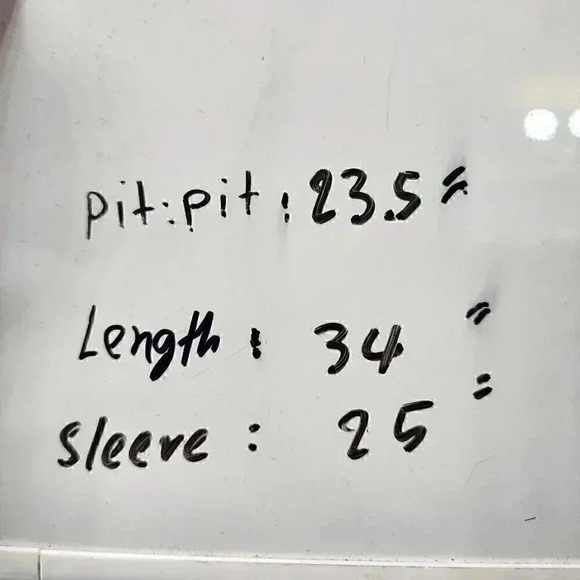 pit:pit: 23.5"
Length: 34"
Sleeve: 25"